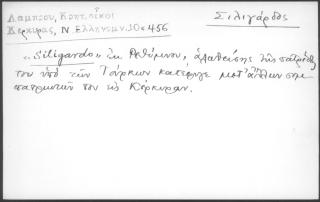 Λάμπρου, Κρητικοὶ
Κερκύρας, Ν. Ἑλληνομν. 10 σ 456
Σιλιγάρδος
«Siligardo» ἐκ Ρεθύμνου, ἁλωθείσης τῆς πατρίδος
του ὑπὸ τῶν Τούρκων κατέφυγε μετ' ἄλλων συμ
πατριωτῶν του εἰς Κέρκυραν.